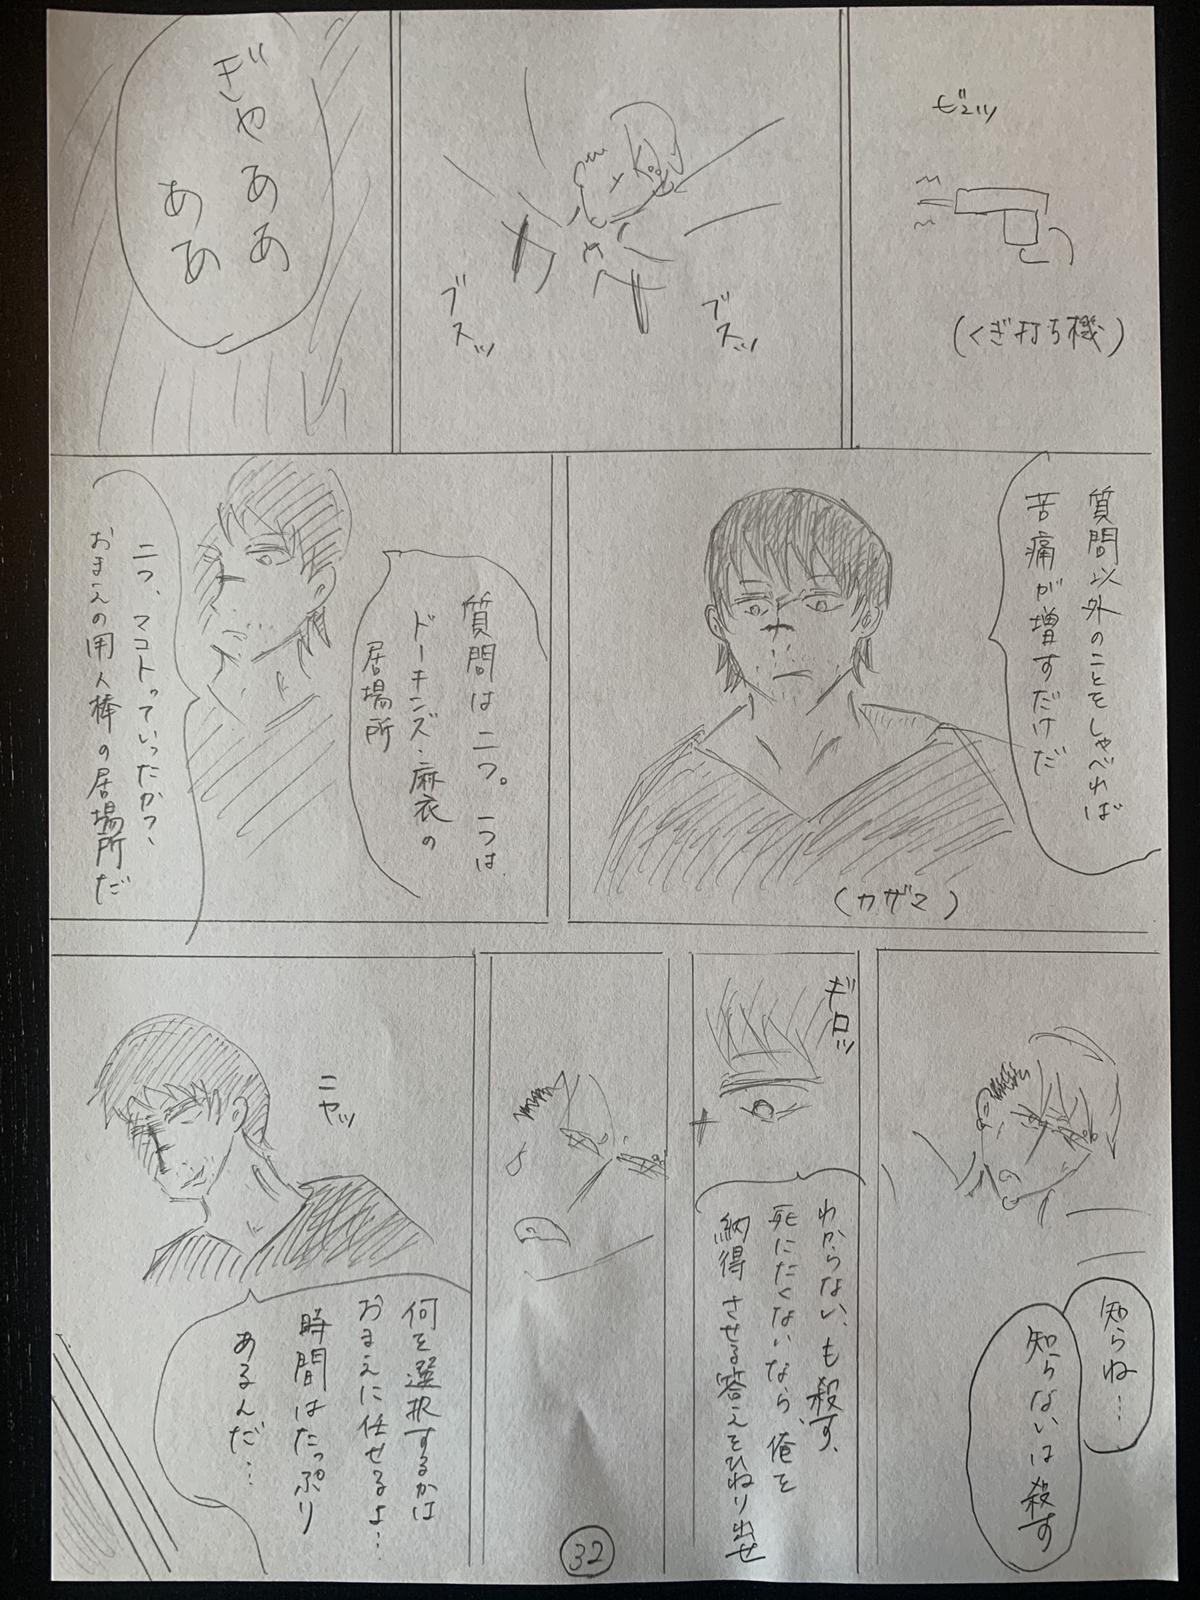 ビュッ
(くぎ打ち機)
ブスッ
ブスッ
ぎゃああ
ああ
質問以外のことをしゃべれば
苦痛が増すだけだ
(カザマ)
質問は二つ。一つは、
ドーキンズ・麻衣の
居場所
二つ、マコトっていったかっ、
おまえの用人棒の居場所だ
知らね…
知らないは殺す
ギロッ
わからない、も殺す、
死にたくないなら、俺を
納得させる答えをひねり出せ
ニヤッ
何を選択するかは
おまえに任せるよ…
時間はたっぷり
あるんだ…
32